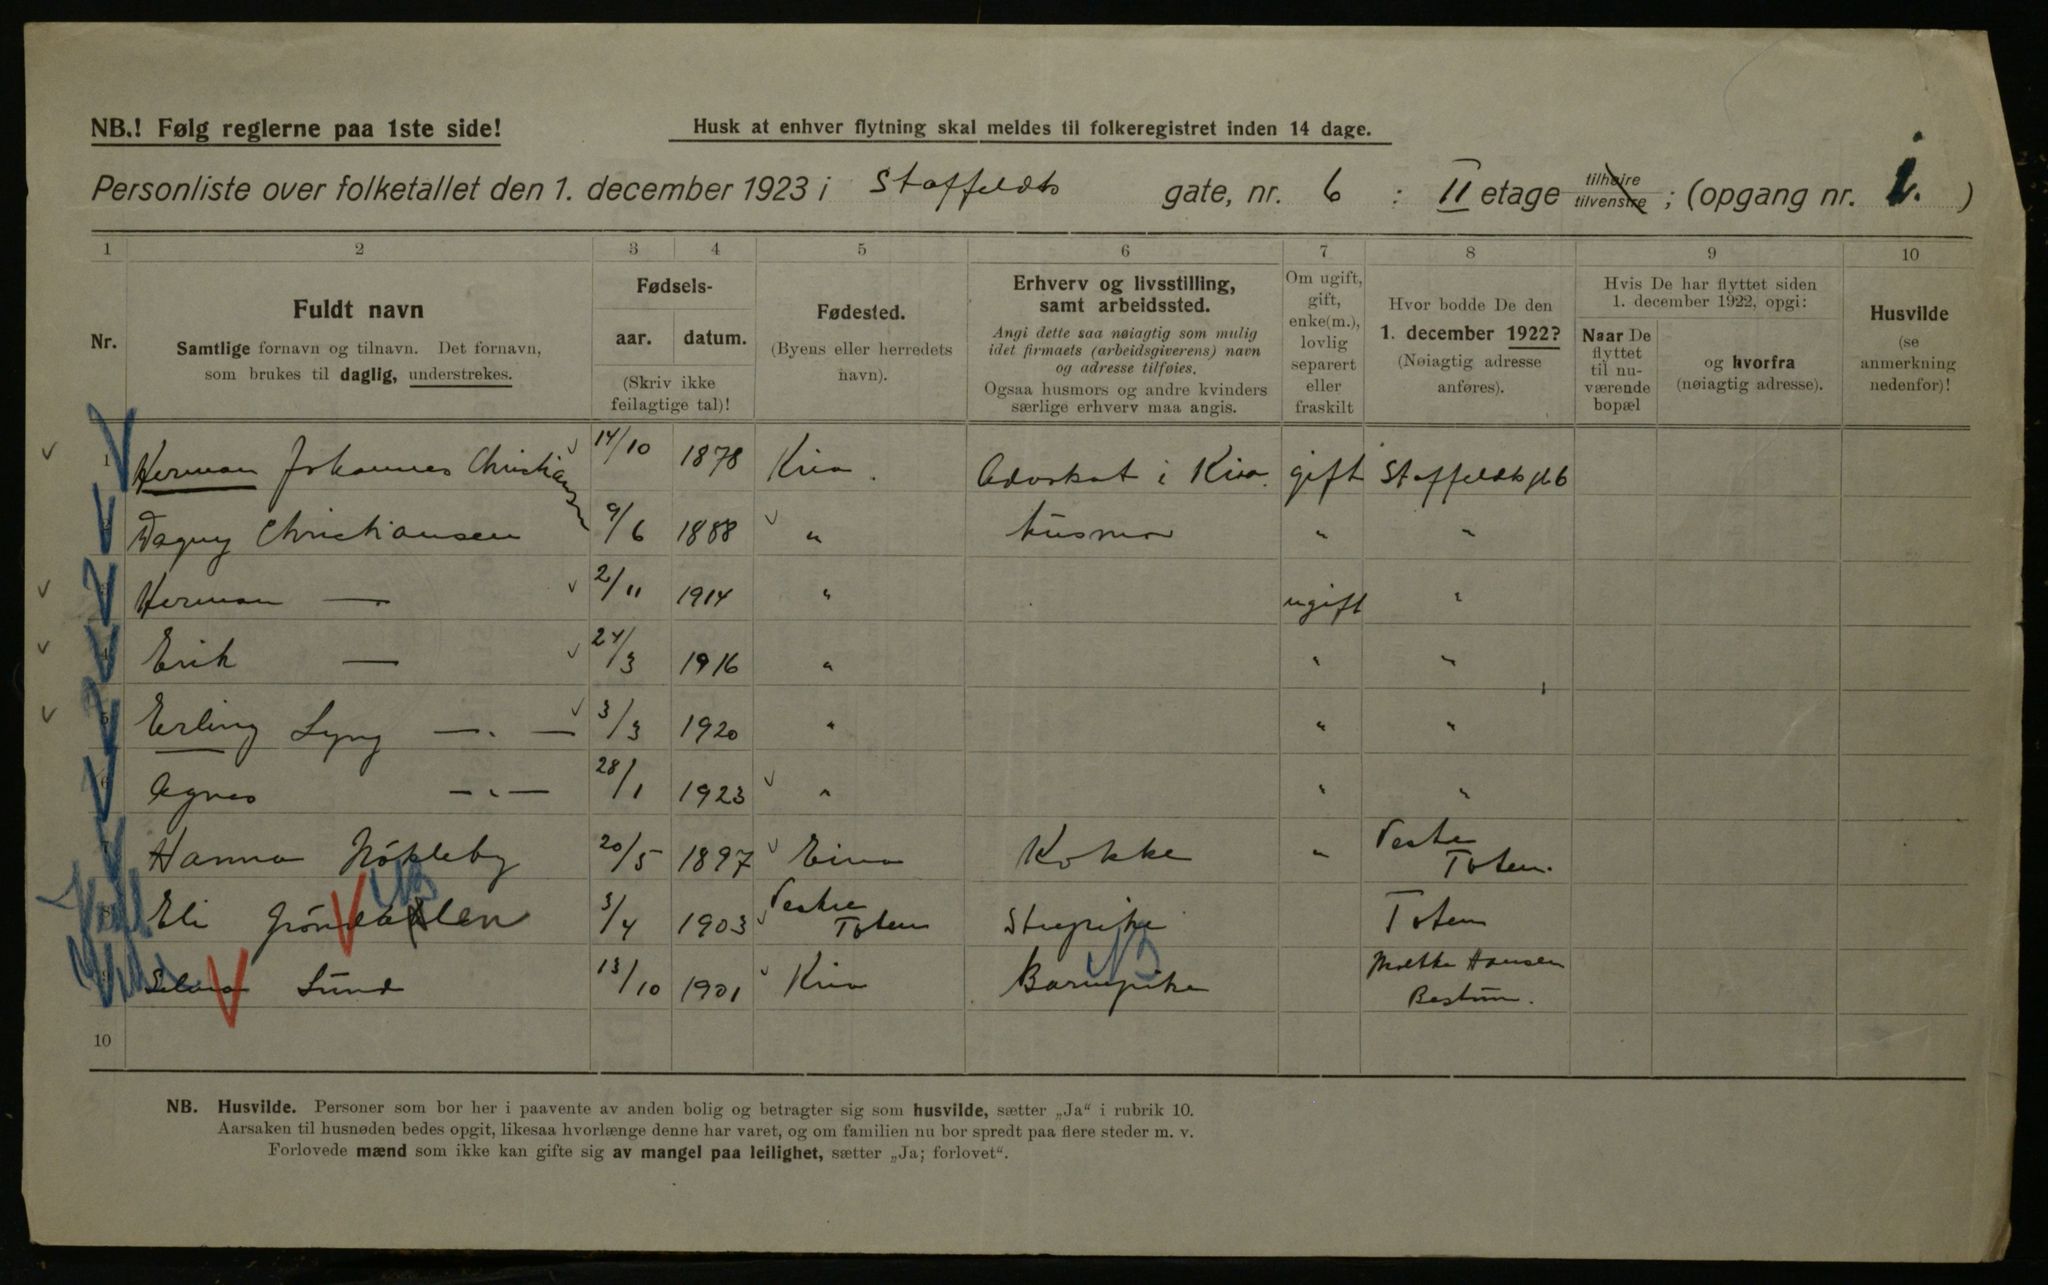 NB.! Følg reglerne paa 1ste side!
Husk at enhver flytning skal meldes til folkeregistret inden 14 dage.
Personliste over folketallet den 1. december 1923 i Staffeldts gate, nr. 6 : II etage tilhøire tilvenstre ; (opgang nr. 1. )
1 2 3 4 5 6 7 8 9 10
Nr.
Fuldt navn
Samtlige fornavn og tilnavn. Det fornavn,
som brukes til daglig, understrekes.
Fødsels-
aar. datum.
(Skriv ikke
feilagtige tal)!
Fødested.
(Byens eller herredets
navn).
Erhverv og livsstilling,
samt arbeidssted.
Angi dette saa nøiagtig som mulig
idet firmaets (arbeidsgiverens) navn
og adresse tilføies.
Ogsaa husmors og andre kvinders
særlige erhverv maa angis.
Om ugift,
gift,
enke(m.),
lovlig
separert
eller
fraskilt
Hvor bodde De den
1. december 1922?
(Nøiagtig adresse
anføres).
Hvis De har flyttet siden
1. december 1922, opgi:
Naar De
flyttet
til nu-
værende
bopæl
og hvorfra
(nøiagtig adresse).
Husvilde
(se
anmerkning
nedenfor)!
1 Herman Johannes Christiansen 14/10 1878 Kria. Advokat i Kria. gift Staffeldts gt 6
Dagny Christiansen 9/6 1888 " Husmor " "
Herman — 2/11 1914 " ugift "
4 Erik — 24/3 1916 " " "
5 Erling Lyng —"— 3/3 1920 " " "
6 Agnes —"— 28/1 1923 " " "
7 Hanna Nøkleby 20/5 1897 Eina Kokke " Vestre Toten.
8 Eli Grøndalen 3/4 1903 Vestre Toten Stuepike Toten
9 Lund 13/10 1901 Kria Barnepike Moltke Hansen
Bestum.
10
NB. Husvilde. Personer som bor her i paavente av anden bolig og betragter sig som husvilde, sætter „Ja“ i rubrik 10.
Aarsaken til husnøden bedes opgit, likesaa hvorlænge denne har varet, og om familien nu bor spredt paa flere steder m. v.
Forlovede mænd som ikke kan gifte sig av mangel paa leilighet, sætter „Ja; forlovet“.